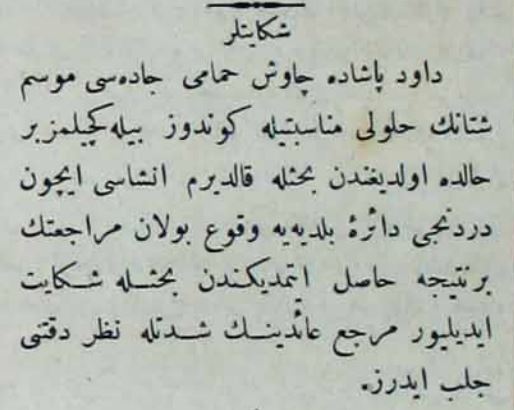 شكايتلر
داود پاشاده چاوش حمامى جاده‌سى موسم
شتانك حلولى مناسبتيله كوندوز بيله كچيلمز بر
حالده اولديغندن بحثله قالديرم انشاسى ايچون
دردنجى دائرۀ بلديه‌يه وقوع بولان مراجعتك
برنتيجه حاصل اتمديكندن بحثله شكايت
ايديليور مرجع عائدينك شدتله نظر دقتنى
جلب ايدرز.